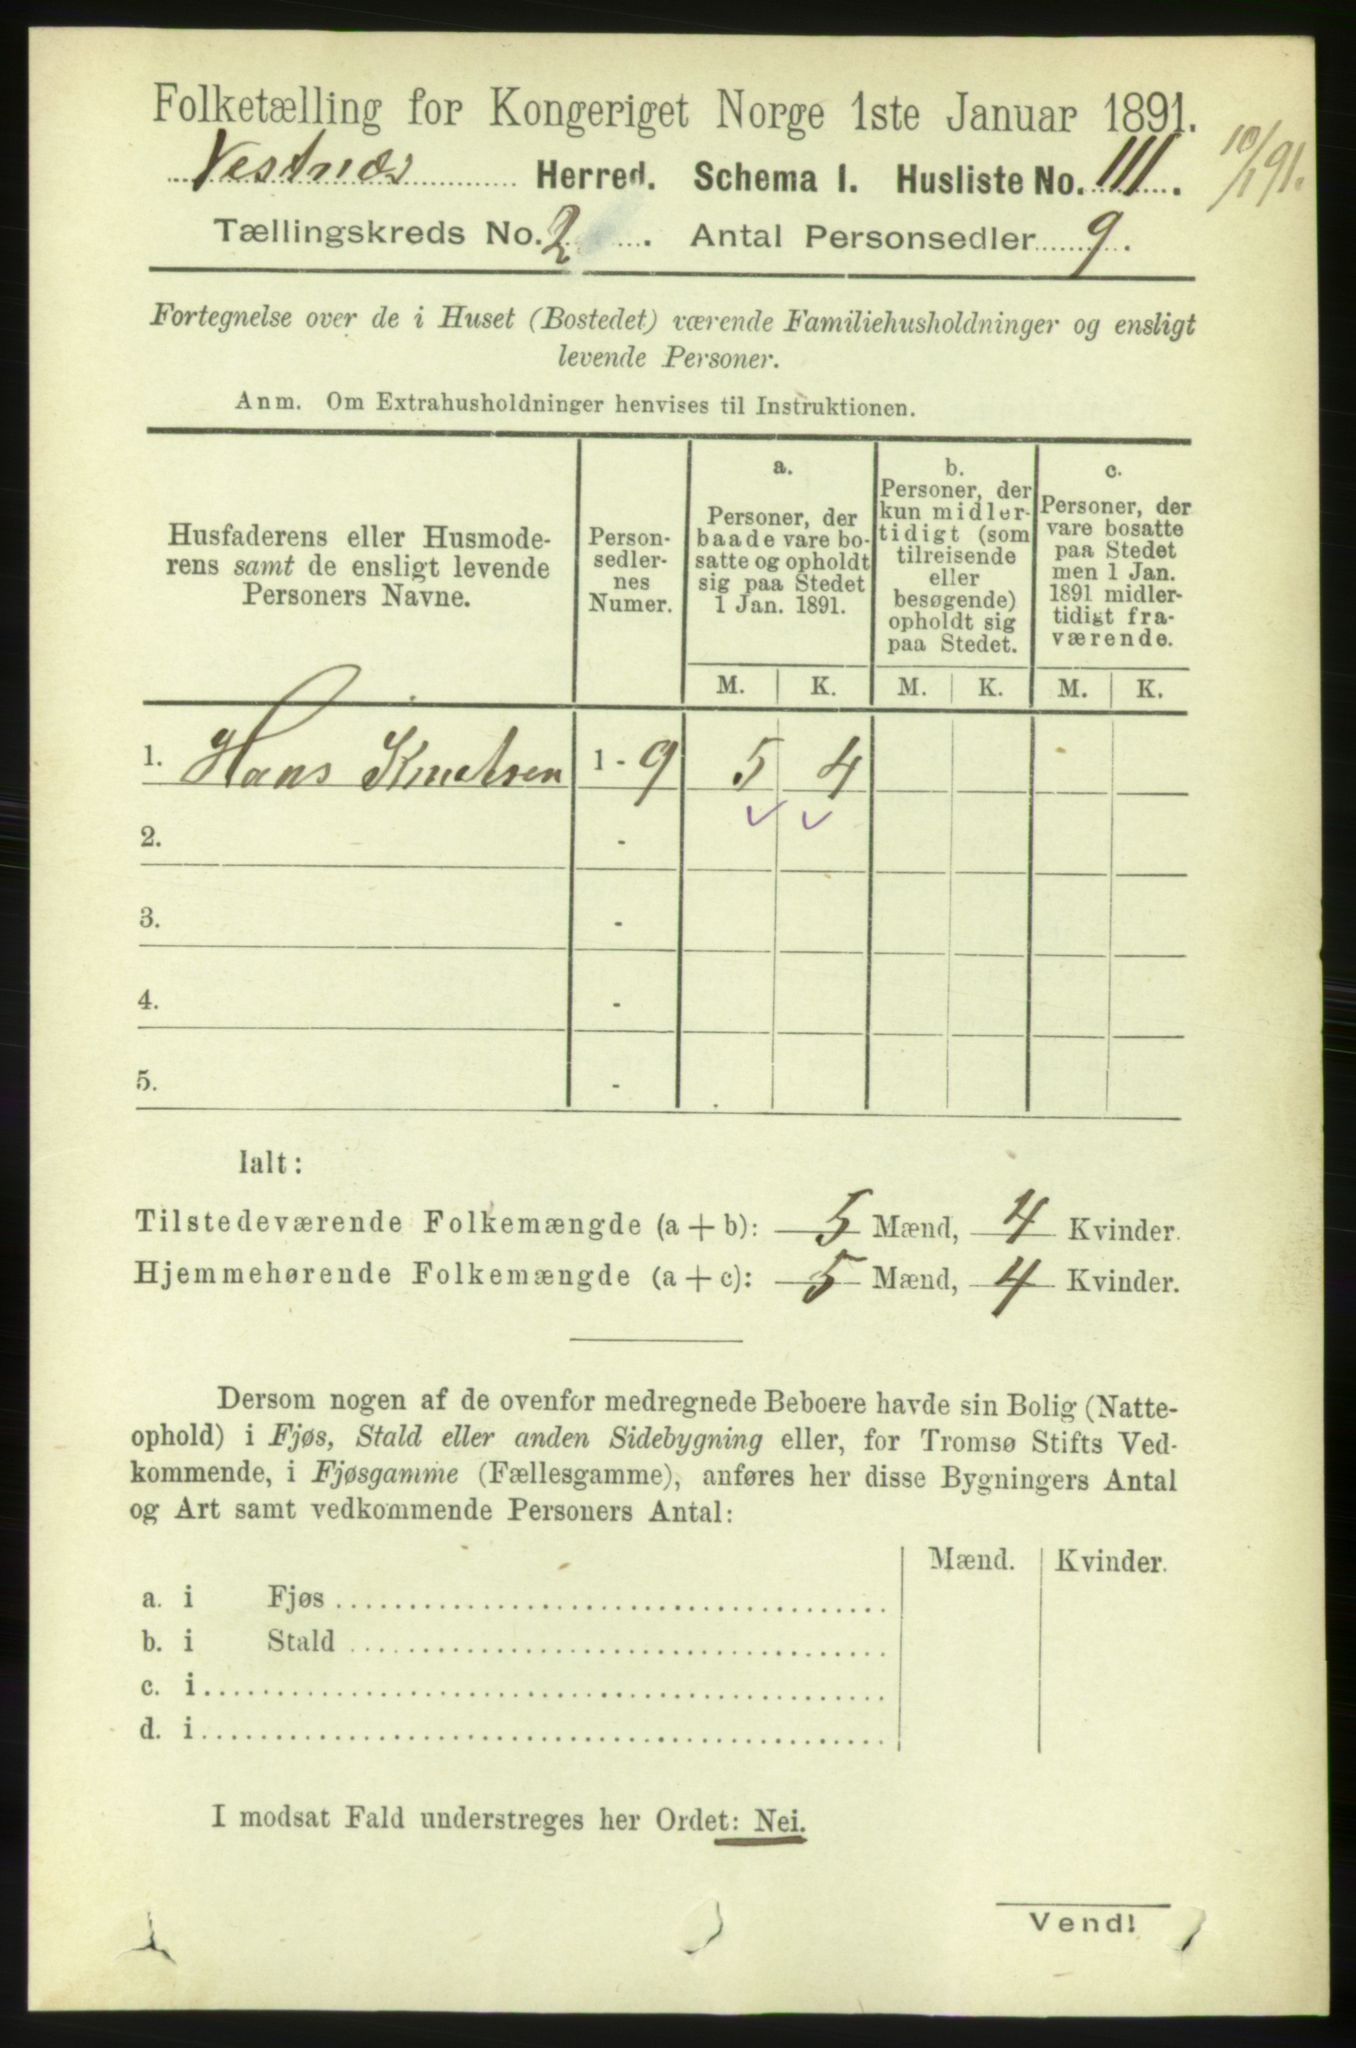 Folketælling for Kongeriget Norge 1ste Januar 1891.
10/1 91.
Vestnæs Herred. Schema I. Husliste No. 111.
Tællingskreds No. 2. Antal Personsedler 9.
Fortegnelse over de i Huset (Bostedet) værende Familiehusholdninger og ensligt
levende Personer.
Anm. Om Extrahusholdninger henvises til Instruktionen.
Husfaderens eller Husmode-
rens samt de ensligt levende
Personers Navne.
Person-
sedler-
nes
Numer.
a.
Personer, der
baade vare bo-
satte og opholdt
sig paa Stedet
1 Jan. 1891.
b.
Personer, der
kun midler-
tidigt (som
tilreisende
eller
besøgende)
opholdt sig
paa Stedet.
c.
Personer, der
vare bosatte
paa Stedet
men 1 Jan.
1891 midler-
tidigt fra-
værende.
M. K. M. K. M. K.
1. Hans Knutsen 1 - 9 5 4
2. -
3. -
4. -
5. -
Ialt:
Tilstedeværende Folkemængde (a + b): 5 Mænd, 4 Kvinder.
Hjemmehørende Folkemængde (a + c): 5 Mænd, 4 Kvinder.
Dersom nogen af de ovenfor medregnede Beboere havde sin Bolig (Natte-
ophold) i Fjøs, Stald eller anden Sidebygning eller, for Tromsø Stifts Ved-
kommende, i Fjøsgamme (Fællesgamme), anføres her disse Bygningers Antal
og Art samt vedkommende Personers Antal:
Mænd. Kvinder.
a. i Fjøs
b. i Stald
c. i
d. i
I modsat Fald understreges her Ordet: Nei.
Vend!